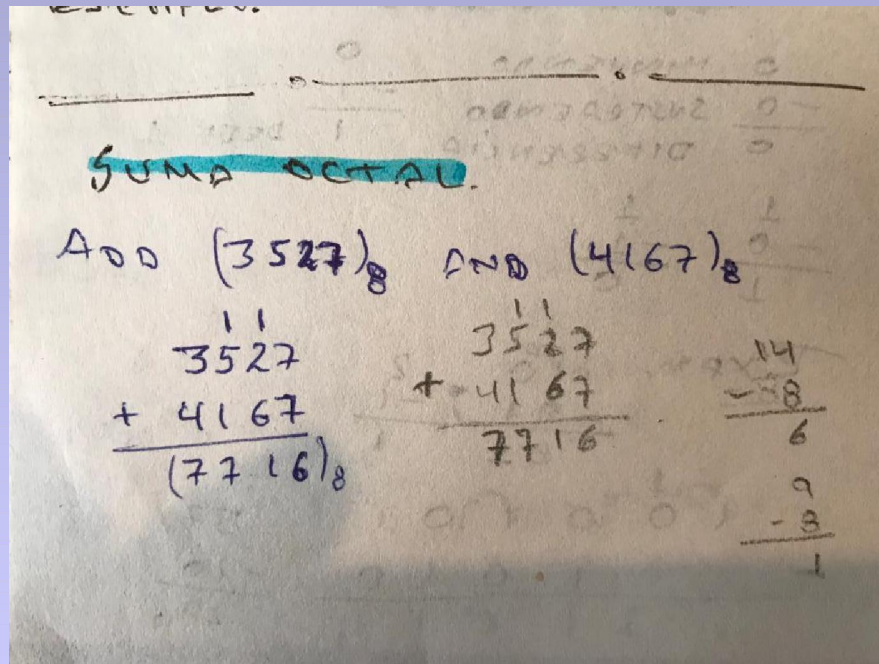 SUMA OCTAL.
ADD (3527)8 AND (4167)8
1 1
3527
+ 4167
(7716)8
1 1
3527
+ 4167
7716
14
- 8
6
9
- 8
1